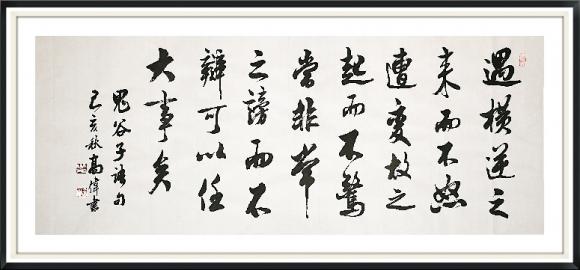 遇横逆之
来而不怒
遭變故之
起而不驚
當非常
之謗而不
辯可以任
大事矣
鬼谷子语句
己亥秋高偉書